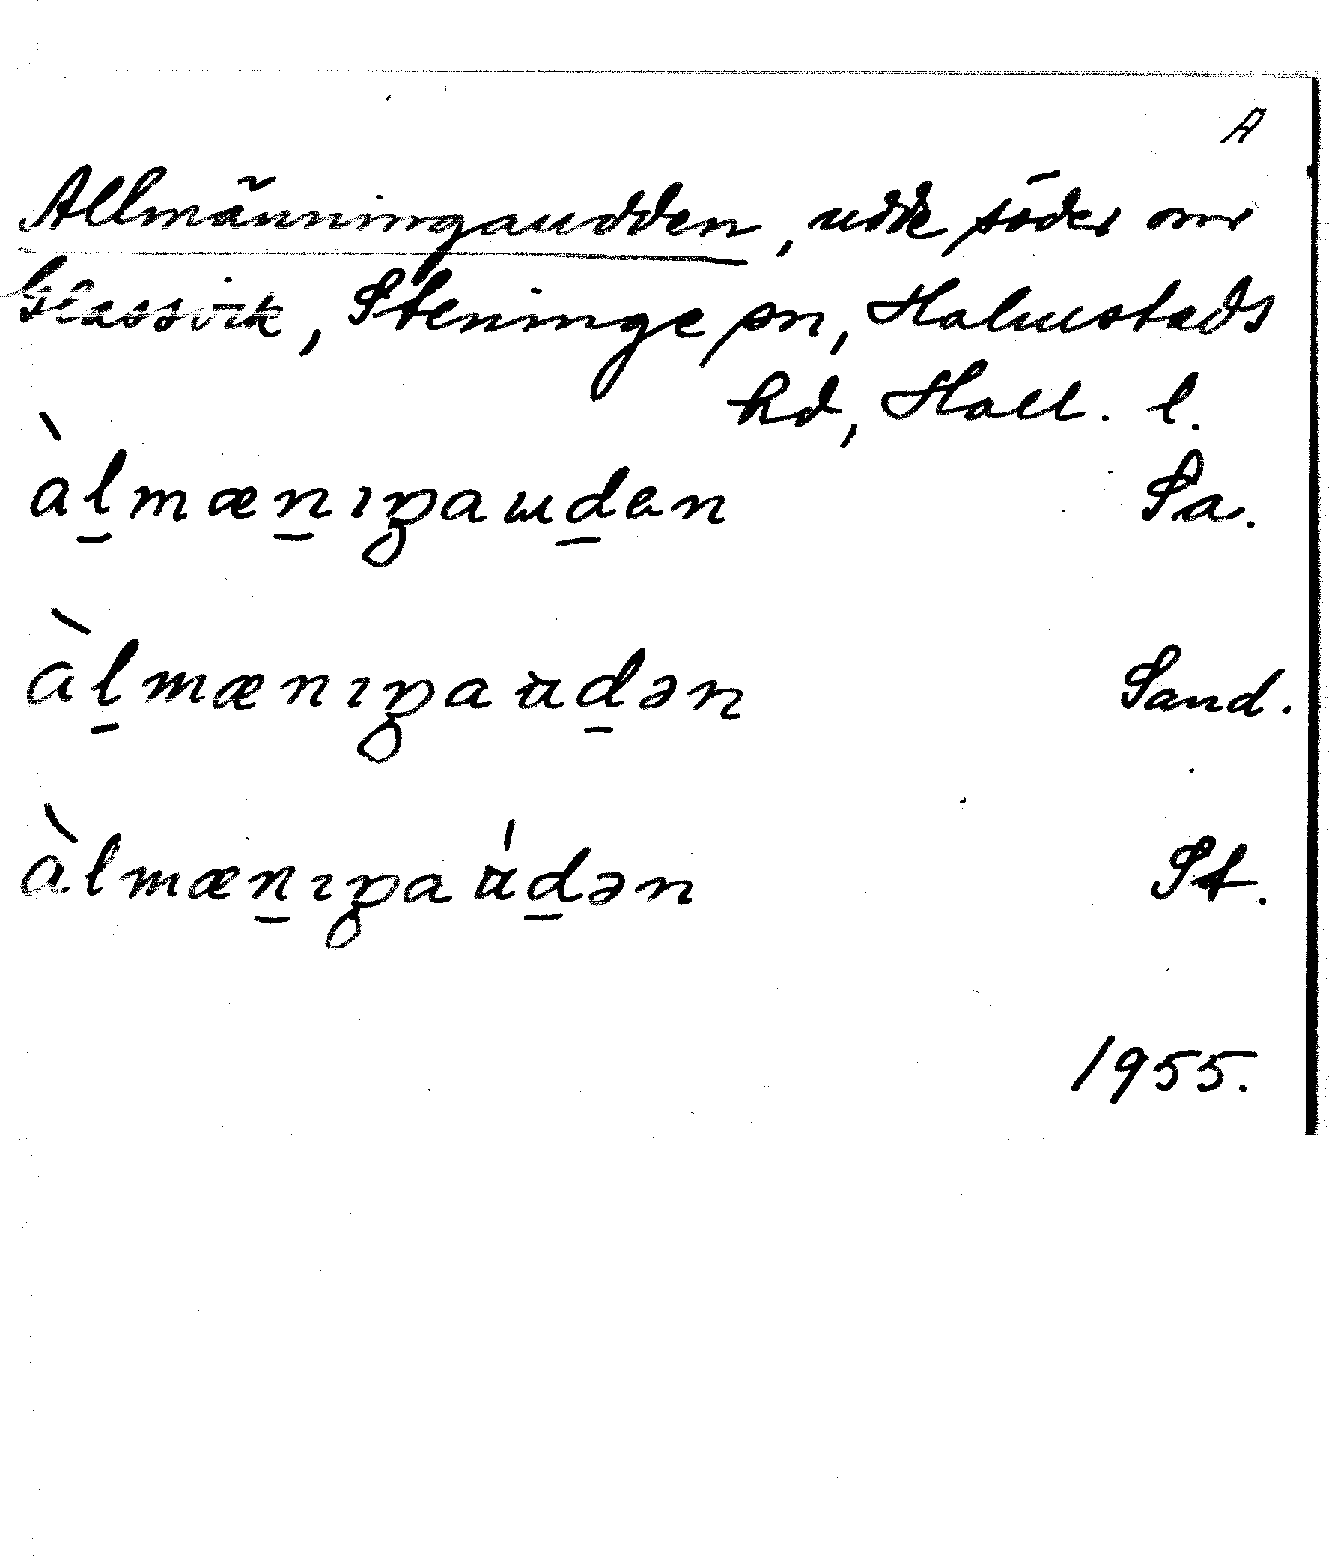 A
Allmänningaudden, udde söder om
Glassvik, Steninge sn, Halmstads
hd, Hall. l.
àl̠mæn̠ıŋaɯd̠en Sa.
àl̠mænıŋaud̠ən Sand.
àlmæn̠ıŋaúd̠ən St.
1955.